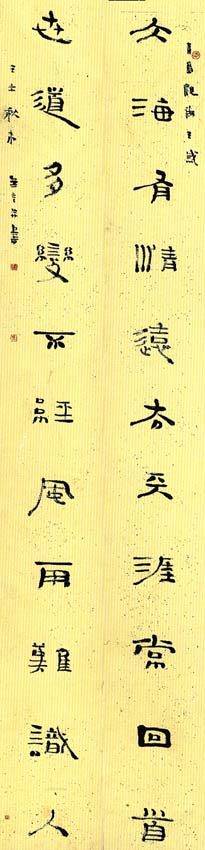 大海有情遠去天涯常回首
世道多變不經風雨難識人